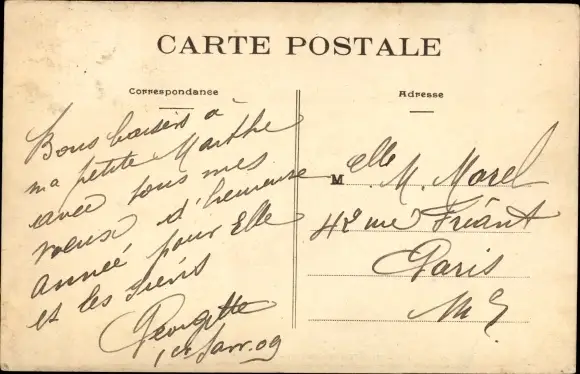 CARTE POSTALE
Correspondance
Bons baisers à
ma petite Marthe
avec tous mes
voeux d'heureuse
année pour Elle
et les siens
Georgette
1er Janv. 09
Adresse
Melle M. Morel
42 rue Friant
Paris